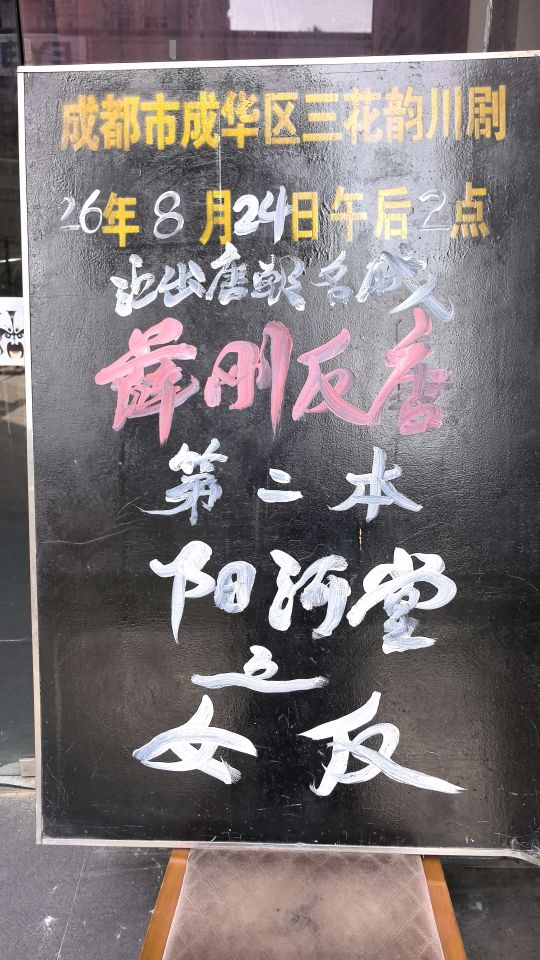 成都市成华区三花韵川剧
26年8月24日午后2点
演出唐朝名戏
薛刚反唐
第二本
阳河堂
之
女反